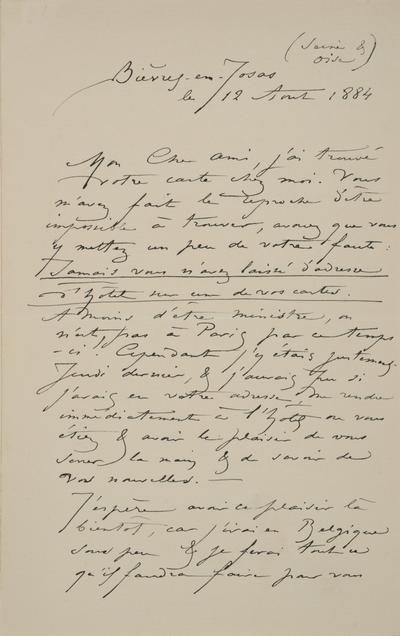 (Seine &
Oise)
Bièvres-en-Josas
le 12 Aout 1884
Mon Cher ami, j'ai trouvé
votre carte chez moi. Vous
m'avez fait le reproche d'être
impossible à trouver, avouez que vous
y mettez un peu de votre faute:
Jamais vous n'avez laissé d'adresse
d'hôtel sur une de vos cartes.
A moins d'être ministre, on
n'est pas à Paris par ce temps
-ci. Cependant j'y étais justement
Jeudi dernier, & j'aurais pu si
j'avais eu votre adresse, me rendre
immédiatement à l'hôtel ou vous
étiez & avoir le plaisir de vous
serrer la main & de savoir de
vos nouvelles. —
J'espère avoir ce plaisir là
bientôt, car j'irai en Belgique
sous peu & je ferai tout ce
qu'il faudra faire pour vous